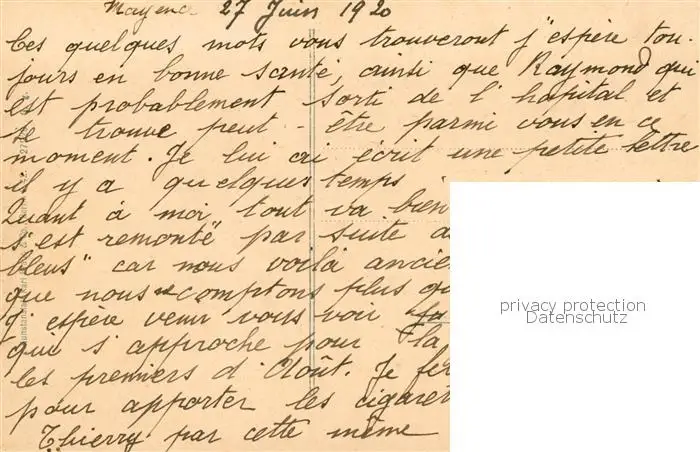 Mayence 27 Juin 1920
Ces quelques mots vous trouveront j'espère tou-
jours en bonne santé, ainsi que Raymond qui
est probablement sorti de l'hopital et
se trouve peut-être parmi vous en ce
moment. Je lui ai écrit une petite lettre
il y a quelques temps
Quant à moi, tout va bien
s'est remonté" par suite
bleus" car nous voilà
que nous comptons plus
J'espère venir vous voir
que s'approche pour la
les premiers d'Août. Je
pour apporter les
Thierry par cette même
privacy protection
Datenschutz